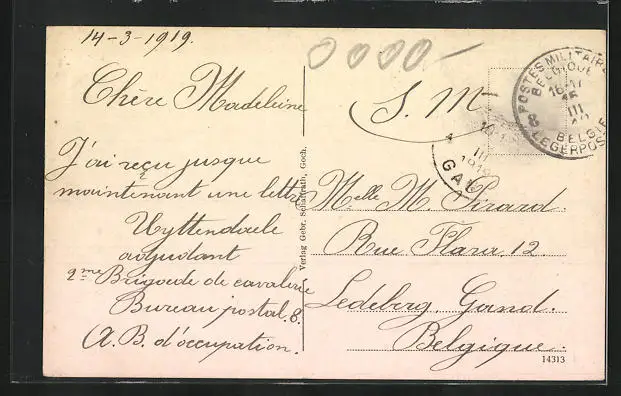 14-3-1919.
0000-
Chère Madeleine
J'ai reçu jusque
maintenant une lettre
Uyttendaele
adjudant
2me Brigade de cavalerie
Bureau postal 8.
(A.B. d'occupation.
Verlag Gebr. Schaffrath, Goch.
S. M.
POSTES MILITAIRES
BELGIQUE
16-17
15
III
BELGIE
LEGERPOST
8
III
1919
GA
Melle M. Pirard.
Rue Flora, 12.
Ledeberg Gand.
Belgique.
14313